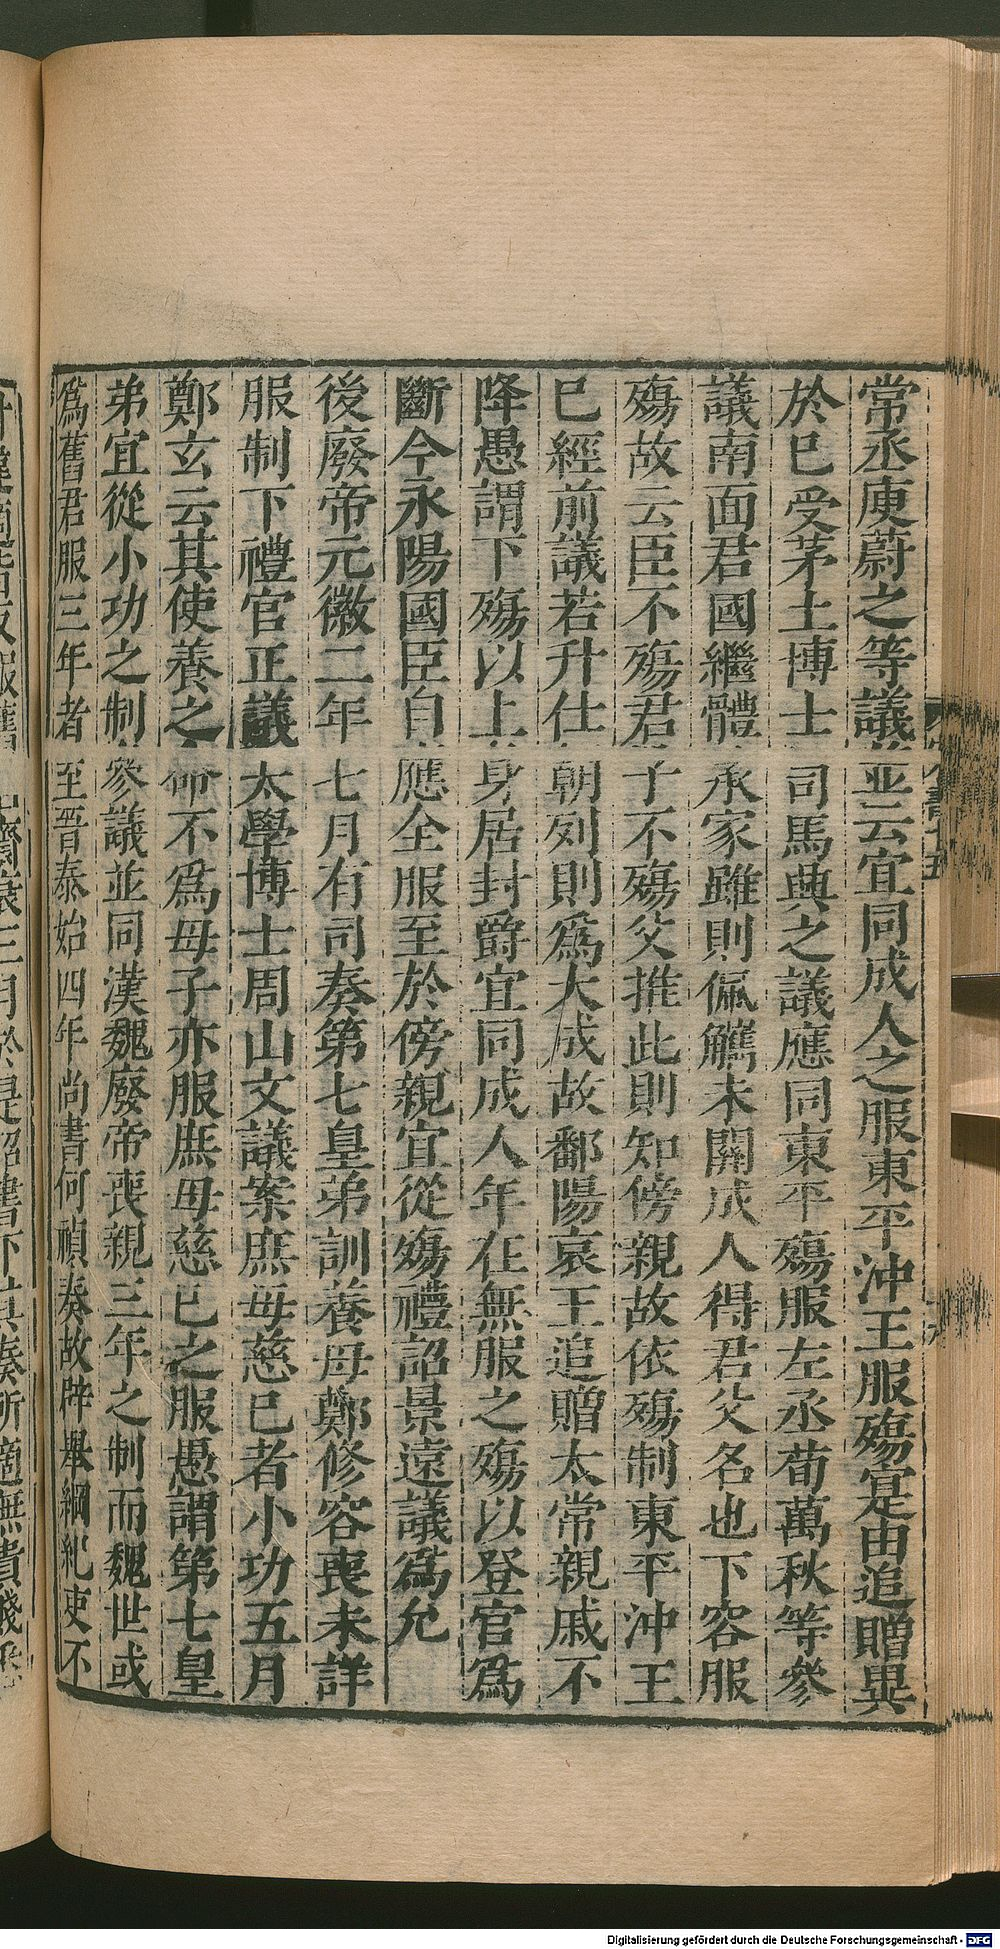 常丞庾蔚之等議並云宜同成人之服東平沖王服殤寔由追贈異
於已受茅土博士司馬興之議應同東平殤服左丞荀萬秋等參
議南面君國繼體承家雖則佩觿未闕成人得君父名也下容服
殤故云臣不殤君子不殤父推此則知傍親故依殤制東平沖王
已經前議若升仕朝列則為大成故鄱陽哀王追贈太常親戚不
降愚謂下殤以上身居封爵宜同成人年在無服之殤以登官為
斷今永陽國臣自應全服至於傍親宜從殤禮詔景遠議為允
後廢帝元徽二年七月有司奏第七皇弟訓養母鄭修容喪未詳
服制下禮官正議太學博士周山文議案庶母慈已者小功五月
鄭玄云其使養之命不為母子亦服庶母慈已之服愚謂第七皇
弟宜從小功之制參議並同漢魏廢帝喪親三年之制而魏世或
為舊君服三年者至晉泰始四年尚書何禎奏故辟舉綱紀吏不
Digitalisierung gefördert durch die Deutsche Forschungsgemeinschaft - DFG